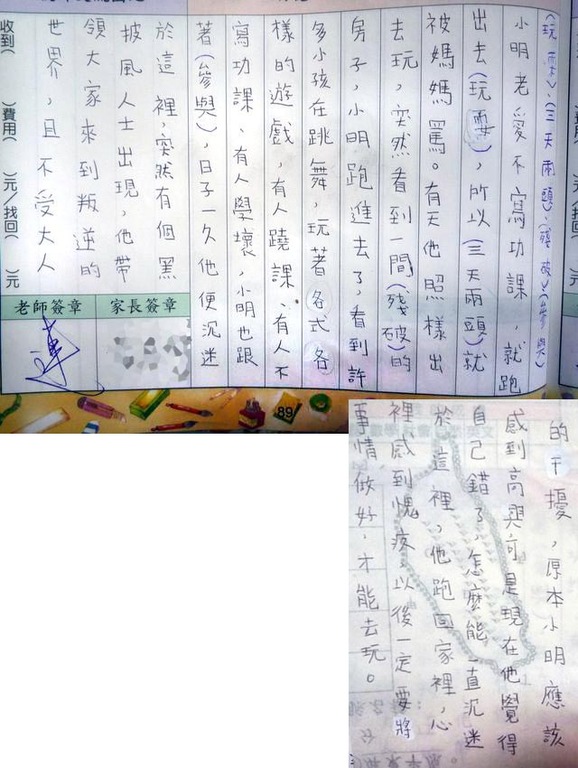 (玩耍)、(三天兩頭)、(殘破)(參與)
小明老愛不寫功課，就跑
出去(玩耍)，所以(三天兩頭)就
被媽媽罵。有天他照樣出
去玩，突然看到一間(殘破)的
房子，小明跑進去了，看到許
多小孩在跳舞，玩著各式各
樣的遊戲，有人蹺課、有人不
寫功課、有人學壞，小明也跟
著(參與)，日子一久他便沉迷
於這裡，突然有個黑
披風人士出現，他帶
領大家來到叛逆的
世界，且不受大人
收到( )費用( )元/找回( )元
老師簽章
家長簽章
89
的干擾，原本小明應該
感到高興可是現在他覺得
自己錯了，怎麼能一直沉迷
於這裡，他跑回家裡，心
裡感到愧疚，以後一定要將
事情做好，才能去玩。